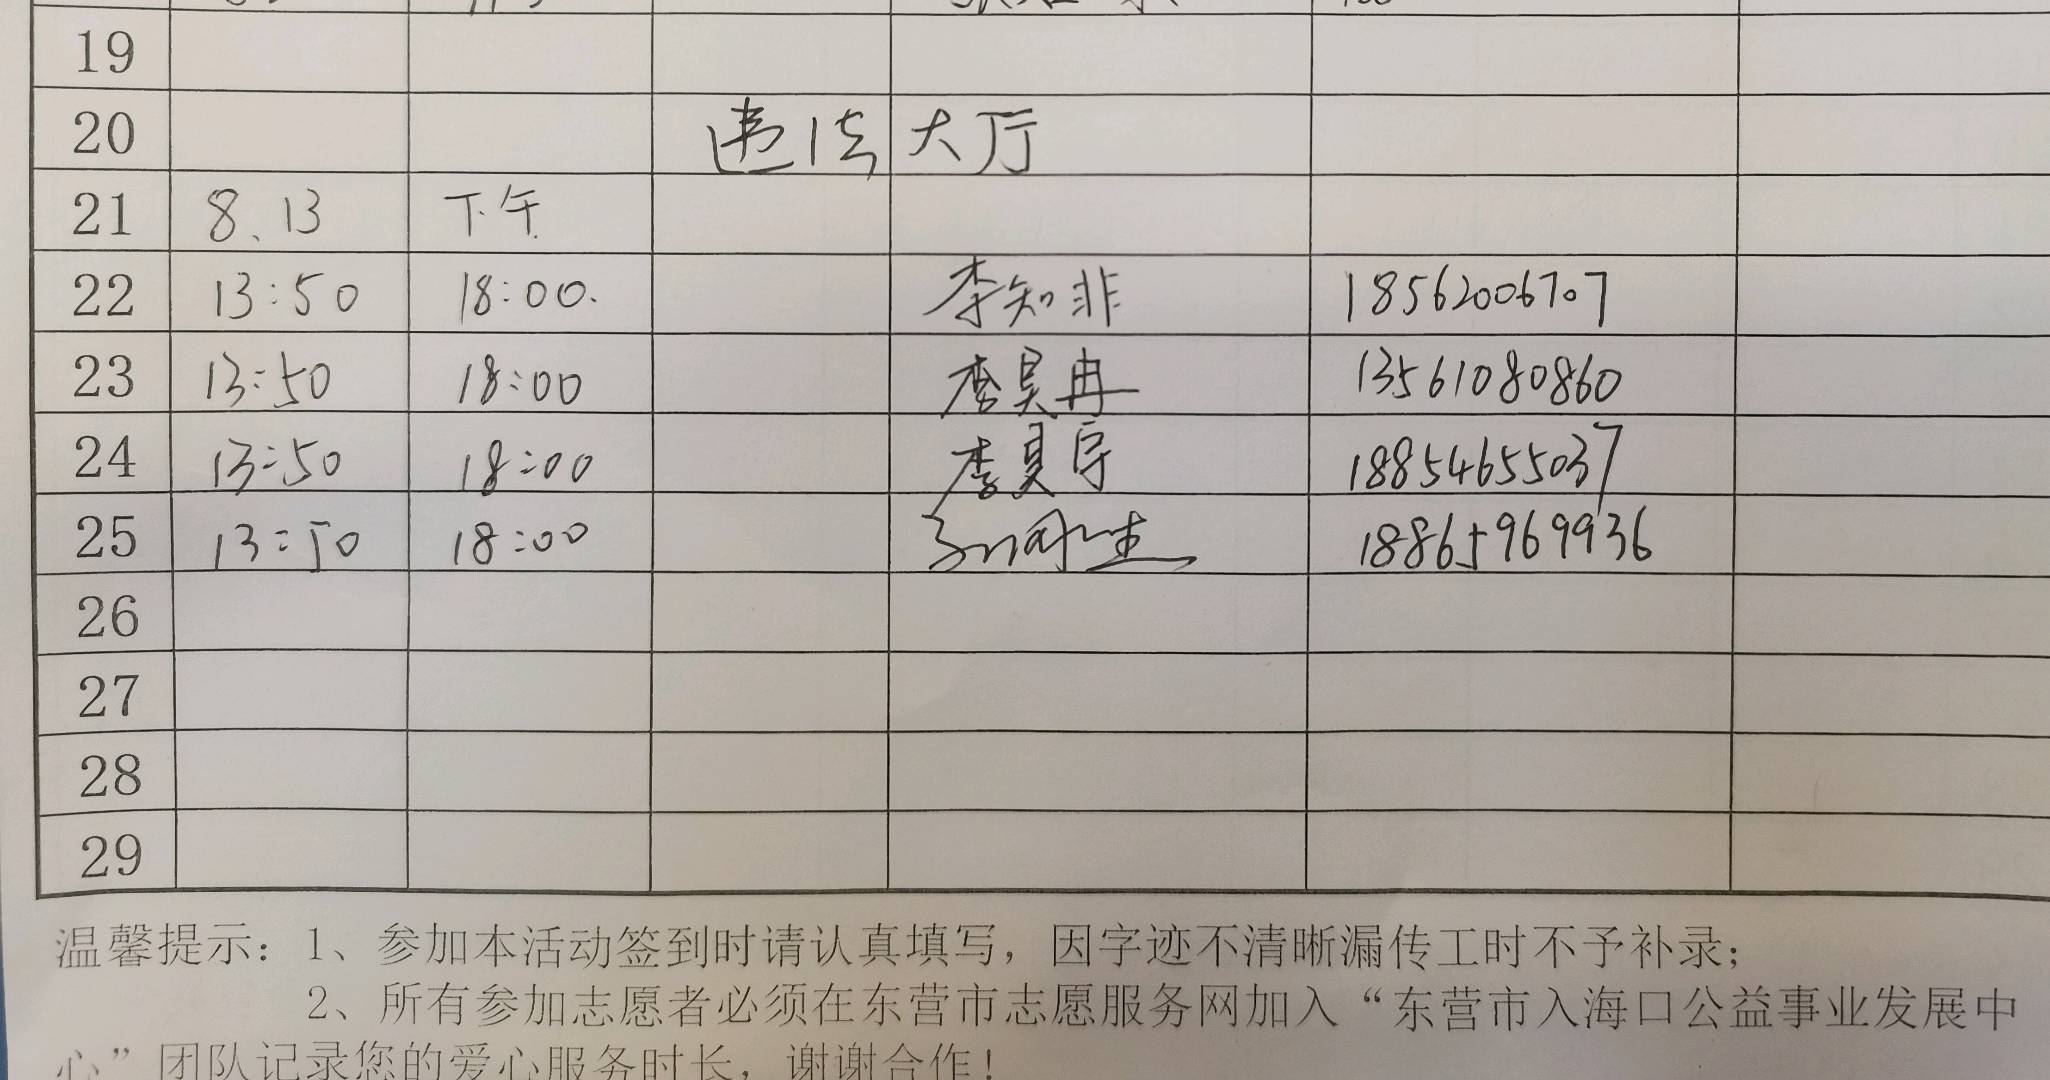 19
20 违法大厅
21 8.13 下午
22 13:50 18:00. 李知非 18562006707
23 13:50 18:00 李昊冉 13561080860
24 13:50 18:00 李昊宇 18854655037
25 13:50 18:00 18865969936
26
27
28
29
温馨提示：1、参加本活动签到时请认真填写，因字迹不清晰漏传工时不予补录；
2、所有参加志愿者必须在东营市志愿服务网加入“东营市入海口公益事业发展中
心”团队记录您的爱心服务时长，谢谢合作！